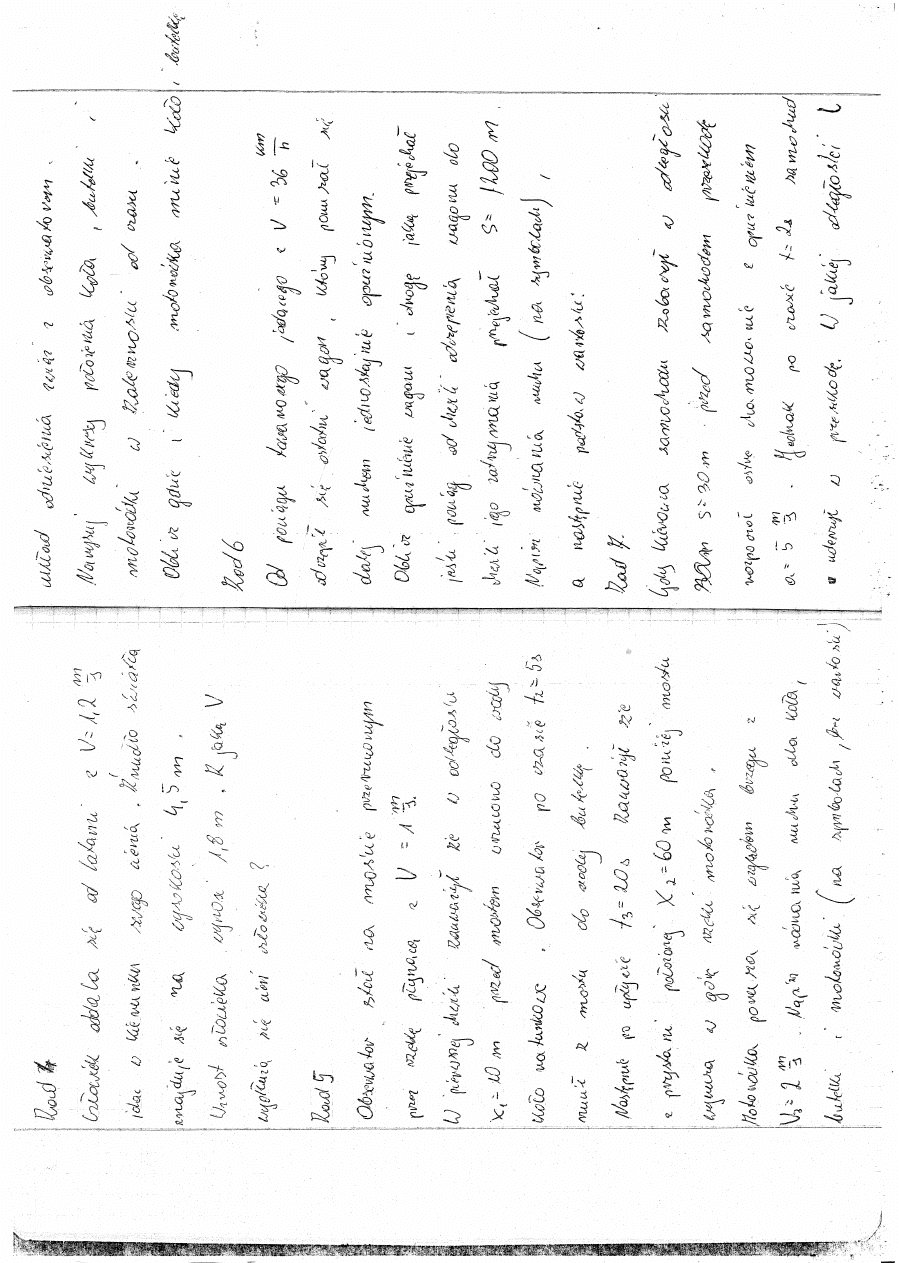 Zad 4
Człowiek oddala się od latarni z V = 1,2 m/s
idąc w kierunku swego cienia. Źródło światła
znajduje się na wysokości 4,5 m.
Wzrost człowieka wynosi 1,8 m. Z jaką V
wydłuża się cień człowieka?
Zad 5
Obserwator stał na moście przerzuconym
przez rzekę płynącą z V = 1 m/s.
W pierwszej chwili zauważył że w odległości
X₁ = 10 m przed mostem wrzucono do wody
koło ratunkowe. Obserwator po czasie t₂ = 5s
rzucił z mostu do wody butelkę.
Następnie po upływie t₃ = 20s zauważył że
z przystani położonej X₂ = 60 m poniżej mostu
wyrusza w górę rzeki motorówka.
Motorówka porusza się względem brzegu z
V₃ = 2 m/s. Napisz równania ruchu dla koła,
butelki i motorówki (na symbolach, bez wartości)
układ odniesienia zwiąż z obserwatorem.
Narysuj wykresy położenia koła, butelki i
motorówki w zależności od czasu.
Oblicz gdzie i kiedy motorówka minie koło i butelkę
Zad 6
Od pociągu towarowego jadącego z V = 36 km/h
odczepił się ostatni wagon, który poruszał się
dalej ruchem jednostajnie opóźnionym.
Oblicz opóźnienie wagonu i drogę jaką przejechał
jeśli pociąg od chwili odczepienia wagonu do
chwili jego zatrzymania przejechał S = 1200 m.
Napisz równania ruchu (na symbolach),
a następnie podstaw wartości.
Zad 7.
Gdy kierowca samochodu zobaczył w odległości
S = 30 m przed samochodem przeszkodę
rozpoczął ostre hamowanie z opóźnieniem
a = 5 m/s. Jednak po czasie t = 2s samochód
uderzył w przeszkodę. W jakiej odległości l